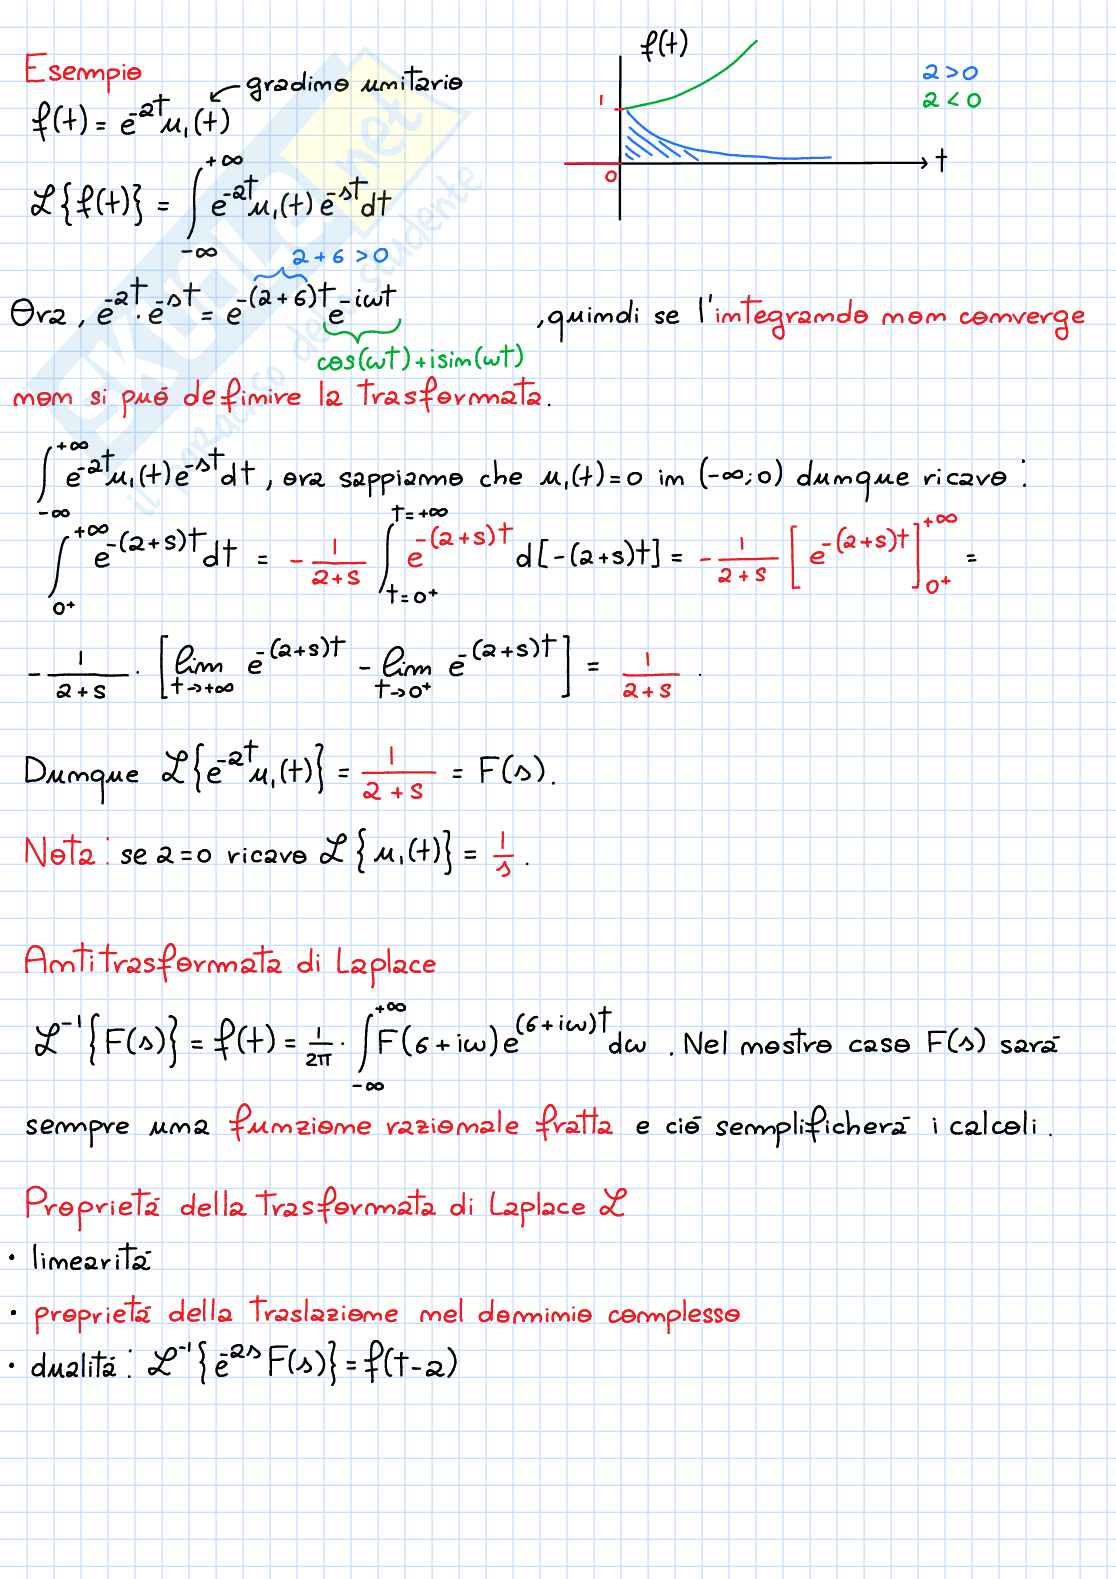 Esempio
f(t) = e^{-at} u₁(t) ← gradino unitario
f(t)
1
0
t
a > 0
a < 0
ℒ{f(t)} = ∫_{-∞}^{+∞} e^{-at} u₁(t) e^{-st} dt
a + σ > 0
Ora, e^{-at} · e^{-st} = e^{-(a+σ)t} e^{-iωt}, quindi se l'integrando non converge
cos(ωt) + isin(ωt)
non si può definire la trasformata.
∫_{-∞}^{+∞} e^{-at} u₁(t) e^{-st} dt, ora sappiamo che u₁(t) = 0 in (-∞; 0) dunque ricavo:
∫_{0⁺}^{+∞} e^{-(a+s)t} dt = - 1/(a+s) ∫_{t=0⁺}^{t=+∞} e^{-(a+s)t} d[-(a+s)t] = - 1/(a+s) [e^{-(a+s)t}]_{0⁺}^{+∞} =
- 1/(a+s) · [lim_{t→+∞} e^{-(a+s)t} - lim_{t→0⁺} e^{-(a+s)t}] = 1/(a+s) .
Dunque ℒ{e^{-at} u₁(t)} = 1/(a+s) = F(s).
Nota: se a=0 ricavo ℒ{u₁(t)} = 1/s .
Antitrasformata di Laplace
ℒ⁻¹{F(s)} = f(t) = 1/2π · ∫_{-∞}^{+∞} F(σ+iω) e^{(σ+iω)t} dω . Nel nostro caso F(s) sarà
sempre una funzione razionale fratta e ciò semplificherà i calcoli.
Proprietà della trasformata di Laplace ℒ
· linearità
· proprietà della traslazione nel dominio complesso
· dualità: ℒ⁻¹{e^{-as} F(s)} = f(t-a)